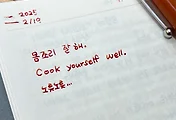 2025
2/19
몸조리 잘 해.
Cook yourself well.
노릇노릇...